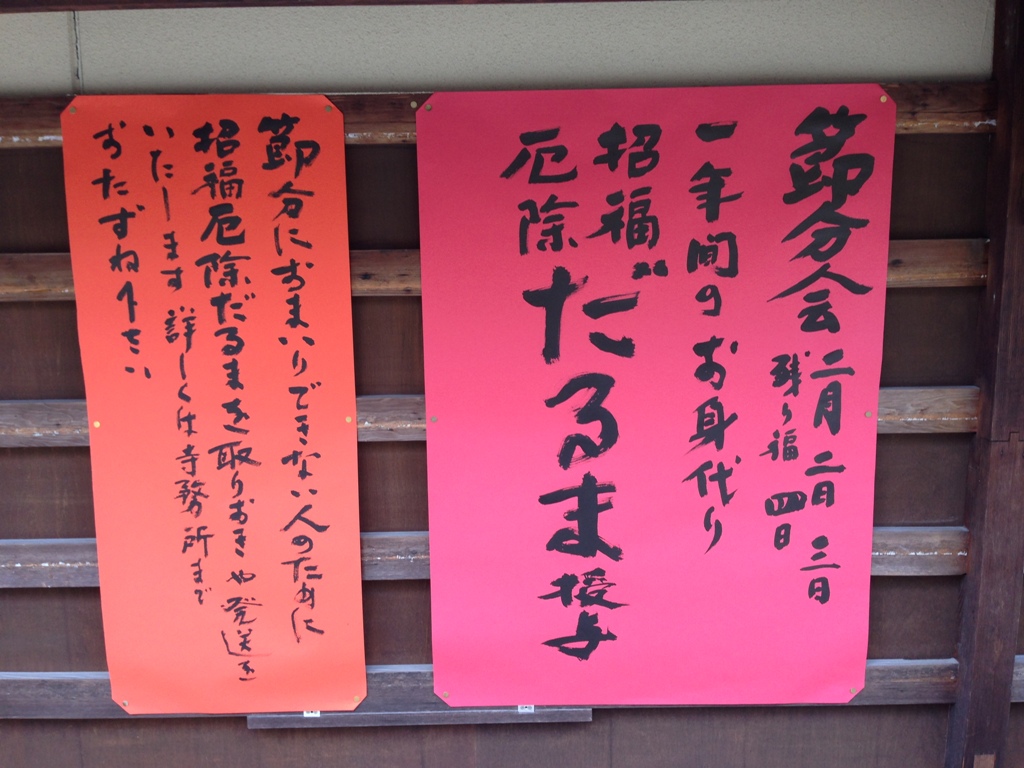 節分会 二月 二日 三日
残り福 四日
一年間のお身代り
招福
厄除
だるま授与
節分におまいりできない人のために
招福厄除だるまを取りおきや発送を
いたします 詳しくは寺務所まで
おたずね下さい